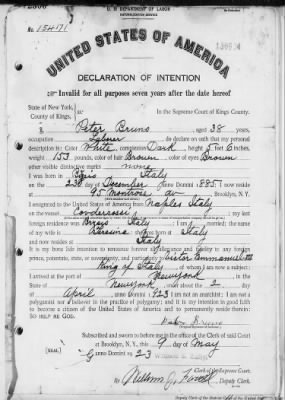 U. S. DEPARTMENT OF LABOR
NATURALIZATION SERVICE
No. 154171
UNITED STATES OF AMERICA
DECLARATION OF INTENTION
Invalid for all purposes seven years after the date hereof
State of New York,
County of Kings, ss:
In the Supreme Court of Kings County.
I, Peter Bruno, aged 38 years,
occupation Labor, do declare on oath that my personal
description is: Color White, complexion Dark, height 5 feet 6 inches,
weight 153 pounds, color of hair Brown, color of eyes Brown
other visible distinctive marks none
I was born in Italy
on the day of December, anno Domini 1885; I now reside
at 95 Montrose av, Brooklyn, N.Y.
I emigrated to the United States of America from Naples Italy
on the vessel; my last
foreign residence was Italy; I am married; the name
of my wife is; she was born at Italy
and now resides at Italy
It is my bona fide intention to renounce forever all allegiance and fidelity to any foreign
prince, potentate, state, or sovereignty, and particularly to Victor Emmanuel III
King of Italy, of whom I am now a subject;
I arrived at the port of New York, in the
State of New York, on or about the 2 day
of April, anno Domini 1923; I am not an anarchist; I am not a
polygamist nor a believer in the practice of polygamy; and it is my intention in good faith
to become a citizen of the United States of America and to permanently reside therein:
SO HELP ME GOD.
Subscribed and sworn to before me in the office of the Clerk of said Court
at Brooklyn, N. Y., this 9 day of May
[SEAL] anno Domini 1923
Clerk of the Supreme Court.
By, Deputy Clerk.